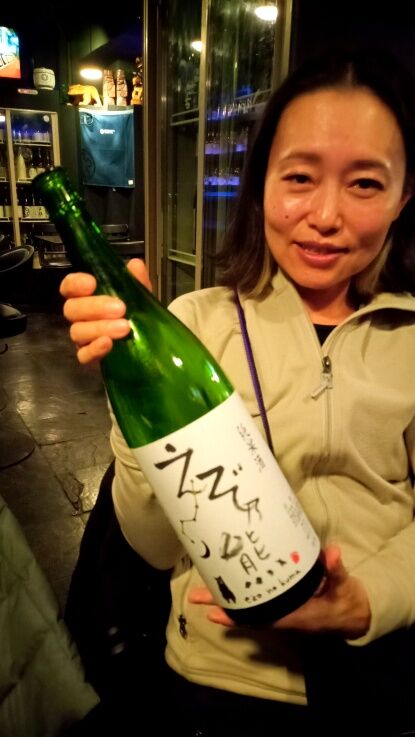 純米酒
えぞ乃熊
ezo no kuma